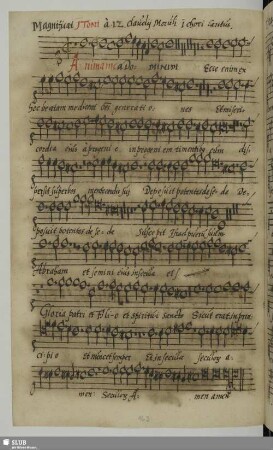 Magnificat I Toni à 12 Claudij Merulli i chori Cantus.
Anima mea Do minum Ecce enim ex
hoc beatam me dicent oẽs generatio nes Et miseri
cordia eius a progenie in progenies timentibus eum dis
persit superbos mente cordis sui Deposuit potentes de se de De
posuit potentes de se de Suscepit Israel puerum suum
Abraham et semini eius in secula
Gloria patri et Filio et spiritui Sancto Sicut erat in prin
cipi o Et nunc et semper Et in secula seculorum a
men Seculorum A men amen
SLUB